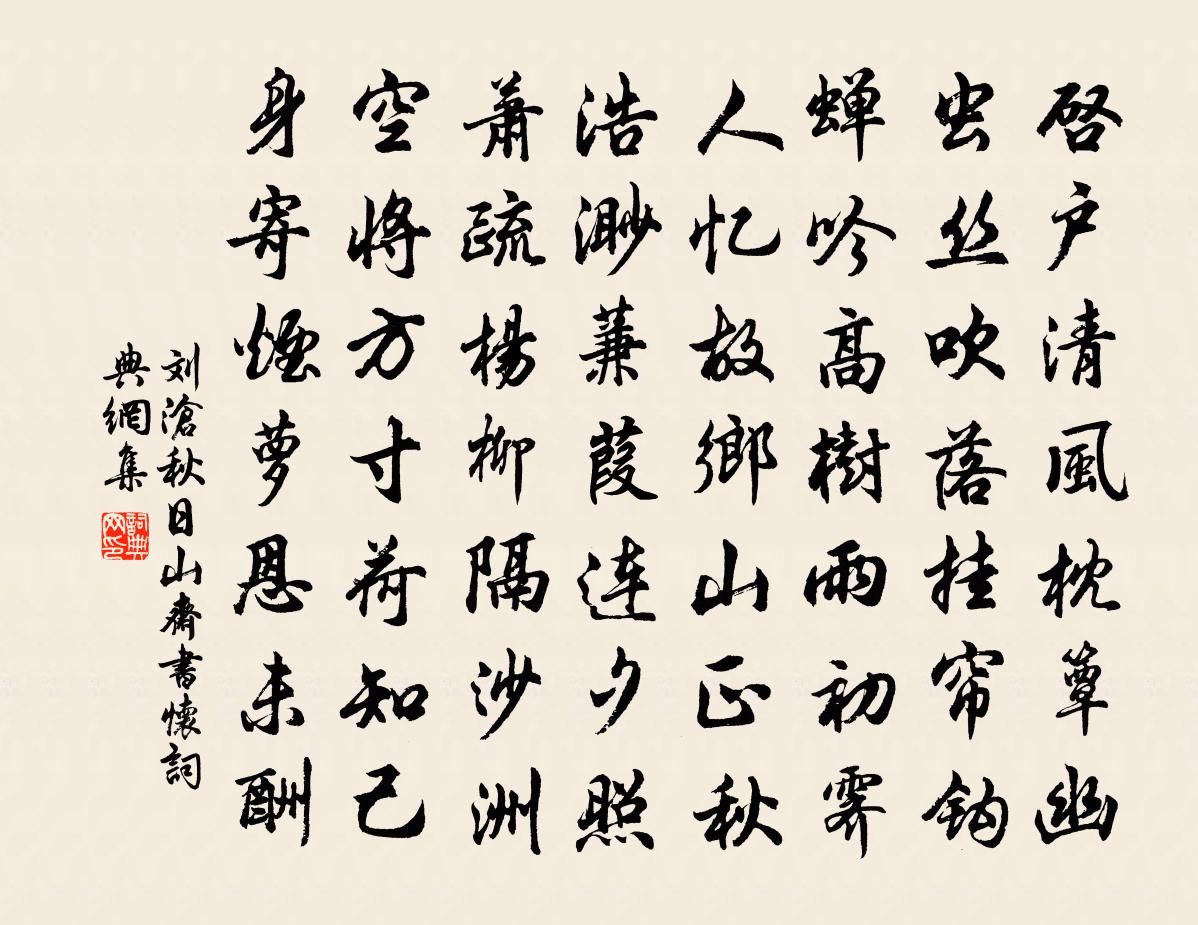 启户清風枕簟幽
虫丝吹落挂帘钩
蝉吟高樹雨初霁
人忆故鄉山正秋
浩渺蒹葭連夕照
萧疏楊柳隔沙洲
空將方寸荷知己
身寄煙萝恩未酬
刘滄秋日山齋書懷詞
典網集
詞典
网印